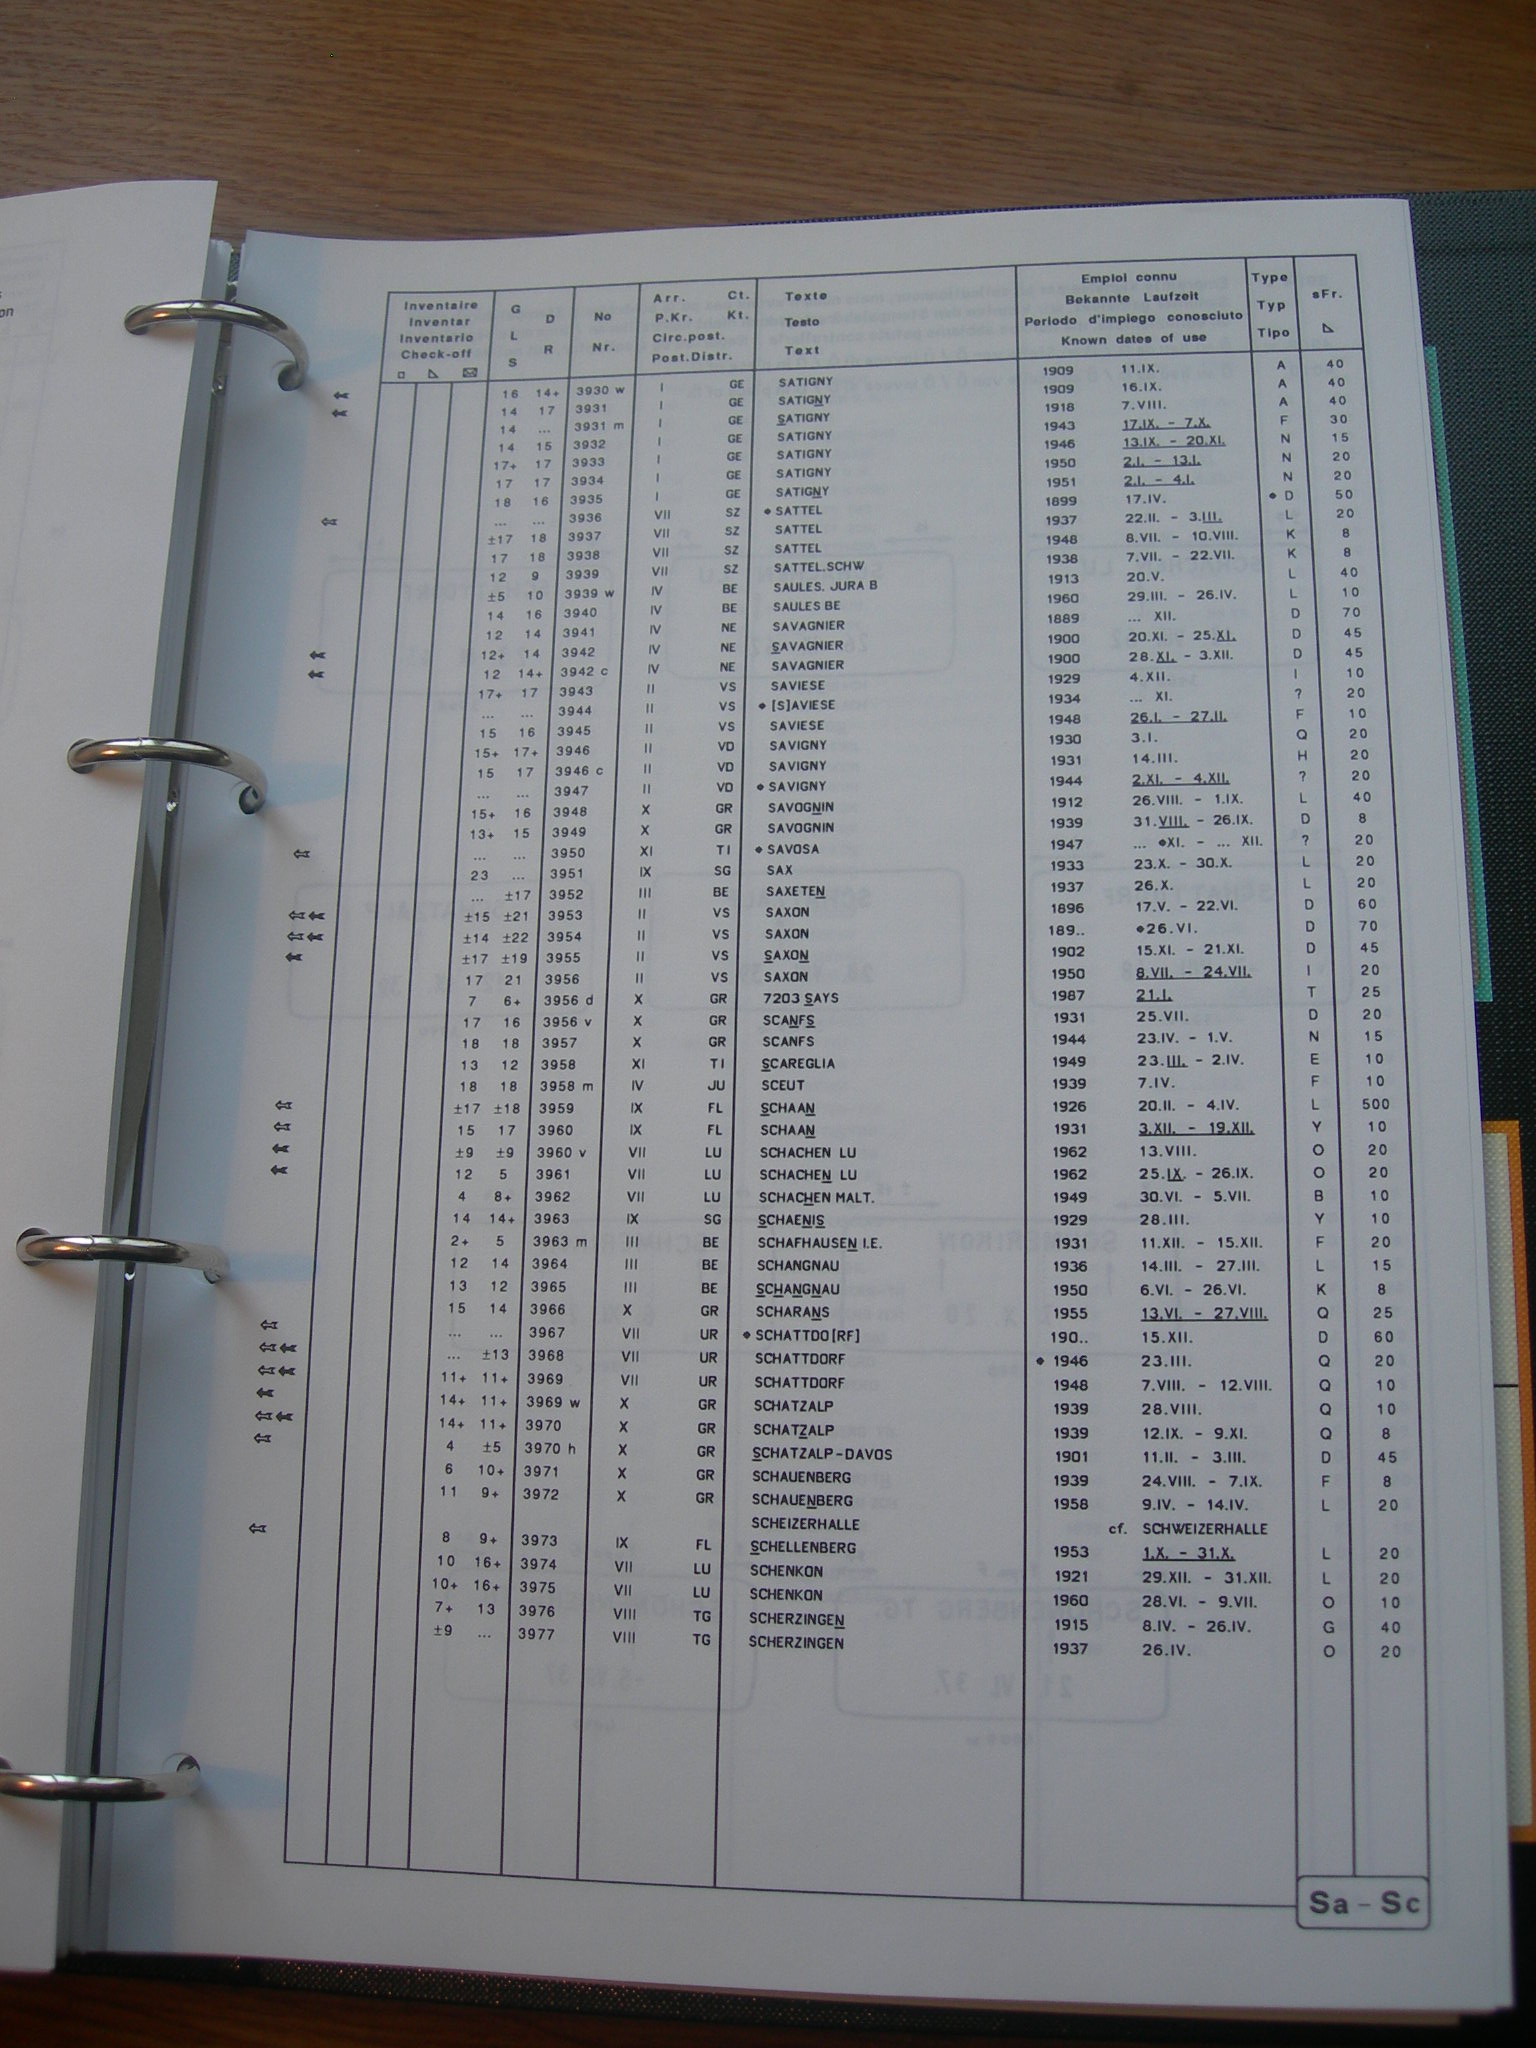 on
Inventaire G Arr. Ct. Texte Emploi connu Type
Inventar D No P.Kr. Kt. Bekannte Laufzeit sFr.
Inventario L Circ.post. Testo Periodo d'impiego conosciuto Typ
Check-off S R Nr. Post.Distr. Text Known dates of use Tipo
16 14+ 3930 w I GE SATIGNY 1909 11.IX. A 40
14 17 3931 I GE SATIGNY 1909 16.IX. A 40
14 ... 3931 m I GE SATIGNY 1918 7.VIII. A 40
14 15 3932 I GE SATIGNY 1943 17.IX. - 7.X. F 30
17+ 17 3933 I GE SATIGNY 1946 13.IX. - 20.XI. N 15
17 17 3934 I GE SATIGNY 1950 2.I. - 13.I. N 20
18 16 3935 I GE SATIGNY 1951 2.I. - 4.I. N 20
... ... 3936 VII SZ • SATTEL 1899 17.IV. • D 50
±17 18 3937 VII SZ SATTEL 1937 22.II. - 3.III. L 20
17 18 3938 VII SZ SATTEL 1948 8.VII. - 10.VIII. K 8
12 9 3939 VII SZ SATTEL.SCHW 1938 7.VII. - 22.VII. K 8
±5 10 3939 w IV BE SAULES. JURA B 1913 20.V. L 40
14 16 3940 IV BE SAULES BE 1960 29.III. - 26.IV. L 10
12 14 3941 IV NE SAVAGNIER 1889 ... XII. D 70
12+ 14 3942 IV NE SAVAGNIER 1900 20.XI. - 25.XI. D 45
12 14+ 3942 c IV NE SAVAGNIER 1900 28.XI. - 3.XII. D 45
17+ 17 3943 II VS SAVIESE 1929 4.XII. I 10
... ... 3944 II VS • [S]AVIESE 1934 ... XI. ? 20
15 16 3945 II VS SAVIESE 1948 26.I. - 27.II. F 10
15+ 17+ 3946 II VD SAVIGNY 1930 3.I. Q 20
15 17 3946 c II VD SAVIGNY 1931 14.III. H 20
... ... 3947 II VD • SAVIGNY 1944 2.XI. - 4.XII. ? 20
15+ 16 3948 X GR SAVOGNIN 1912 26.VIII. - 1.IX. L 40
13+ 15 3949 X GR SAVOGNIN 1939 31.VIII. - 26.IX. D 8
... ... 3950 XI TI • SAVOSA 1947 ... •XI. - ... XII. ? 20
23 ... 3951 IX SG SAX 1933 23.X. - 30.X. L 20
... ±17 3952 III BE SAXETEN 1937 26.X. L 20
±15 ±21 3953 II VS SAXON 1896 17.V. - 22.VI. D 60
±14 ±22 3954 II VS SAXON 189.. •26.VI. D 70
±17 ±19 3955 II VS SAXON 1902 15.XI. - 21.XI. D 45
17 21 3956 II VS SAXON 1950 8.VII. - 24.VII. I 20
7 6+ 3956 d X GR 7203 SAYS 1987 21.I. T 25
17 16 3956 v X GR SCANFS 1931 25.VII. D 20
18 18 3957 X GR SCANFS 1944 23.IV. - 1.V. N 15
13 12 3958 XI TI SCAREGLIA 1949 23.III. - 2.IV. E 10
18 18 3958 m IV JU SCEUT 1939 7.IV. F 10
±17 ±18 3959 IX FL SCHAAN 1926 20.II. - 4.IV. L 500
15 17 3960 IX FL SCHAAN 1931 3.XII. - 19.XII. Y 10
±9 ±9 3960 v VII LU SCHACHEN LU 1962 13.VIII. O 20
12 5 3961 VII LU SCHACHEN LU 1962 25.IX. - 26.IX. O 20
4 8+ 3962 VII LU SCHACHEN MALT. 1949 30.VI. - 5.VII. B 10
14 14+ 3963 IX SG SCHAENIS 1929 28.III. Y 10
2+ 5 3963 m III BE SCHAFHAUSEN I.E. 1931 11.XII. - 15.XII. F 20
12 14 3964 III BE SCHANGNAU 1936 14.III. - 27.III. L 15
13 12 3965 III BE SCHANGNAU 1950 6.VI. - 26.VI. K 8
15 14 3966 X GR SCHARANS 1955 13.VI. - 27.VIII. Q 25
... ... 3967 VII UR • SCHATTDO[RF] 190.. 15.XII. D 60
... ±13 3968 VII UR SCHATTDORF • 1946 23.III. Q 20
11+ 11+ 3969 VII UR SCHATTDORF 1948 7.VIII. - 12.VIII. Q 10
14+ 11+ 3969 w X GR SCHATZALP 1939 28.VIII. Q 10
14+ 11+ 3970 X GR SCHATZALP 1939 12.IX. - 9.XI. Q 8
4 ±5 3970 h X GR SCHATZALP-DAVOS 1901 11.II. - 3.III. D 45
6 10+ 3971 X GR SCHAUENBERG 1939 24.VIII. - 7.IX. F 8
11 9+ 3972 X GR SCHAUENBERG 1958 9.IV. - 14.IV. L 20
SCHEIZERHALLE cf. SCHWEIZERHALLE
8 9+ 3973 IX FL SCHELLENBERG 1953 1.X. - 31.X. L 20
10 16+ 3974 VII LU SCHENKON 1921 29.XII. - 31.XII. L 20
10+ 16+ 3975 VII LU SCHENKON 1960 28.VI. - 9.VII. O 10
7+ 13 3976 VIII TG SCHERZINGEN 1915 8.IV. - 26.IV. G 40
±9 ... 3977 VIII TG SCHERZINGEN 1937 26.IV. O 20
Sa - Sc